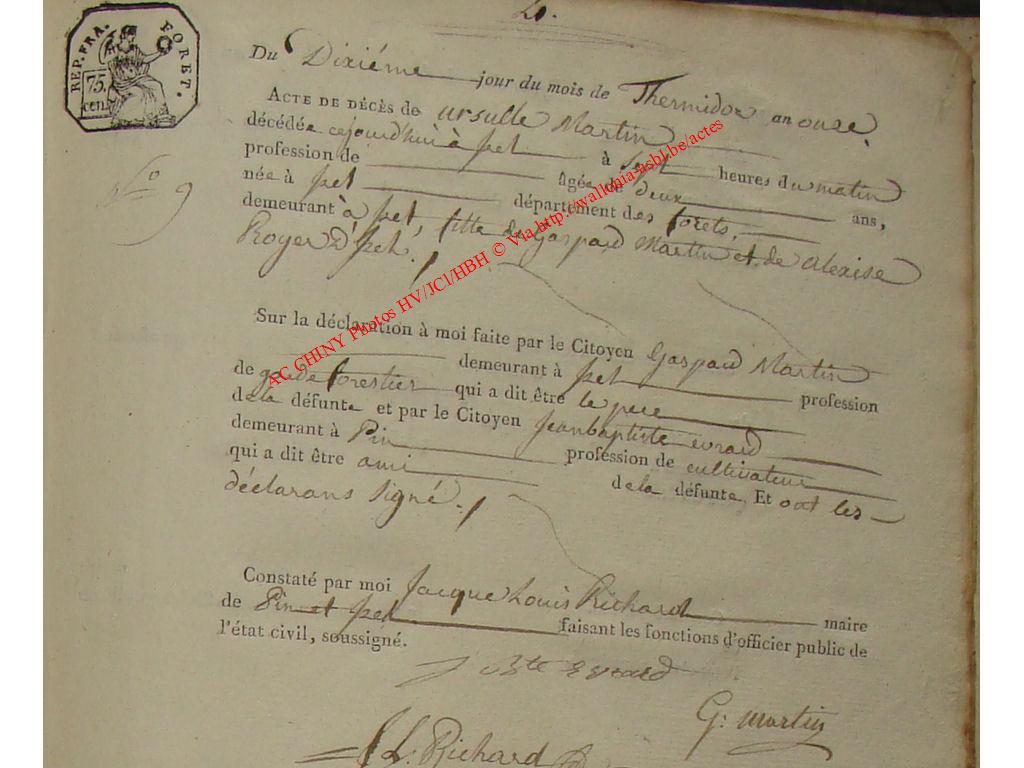 REP. FRA. FORET.
75
cen.
Du Dixiéme jour du mois de Thermidor an onze.
ACTE DE DÉCÈS de ursulle Martin
décédée cejourd'hui à jzel à sept heures du matin
profession de âgée de deux ans,
née à jzel département des forets,
demeurant à jzel, fille de Gaspard Martin et de alexise
Royer d'jzel.
N.o 9
Sur la déclaration à moi faite par le Citoyen Gaspard Martin
demeurant à jzel profession
de garde forestier qui a dit être le pere
de la défunte et par le Citoyen jean baptiste evrard
demeurant à Pin profession de cultivateur
qui a dit être ami de la défunte, Et ont les
déclarans signé.
Constaté par moi Jacque Louis Richard maire
de Pin et jzel faisant les fonctions d'officier public de
l'état civil, soussigné.
j bte evrard
G: martin
J L: Richard
AC CHINY Photos HV/JCl/HBH © Via http://wallonia-asbl.be/actes